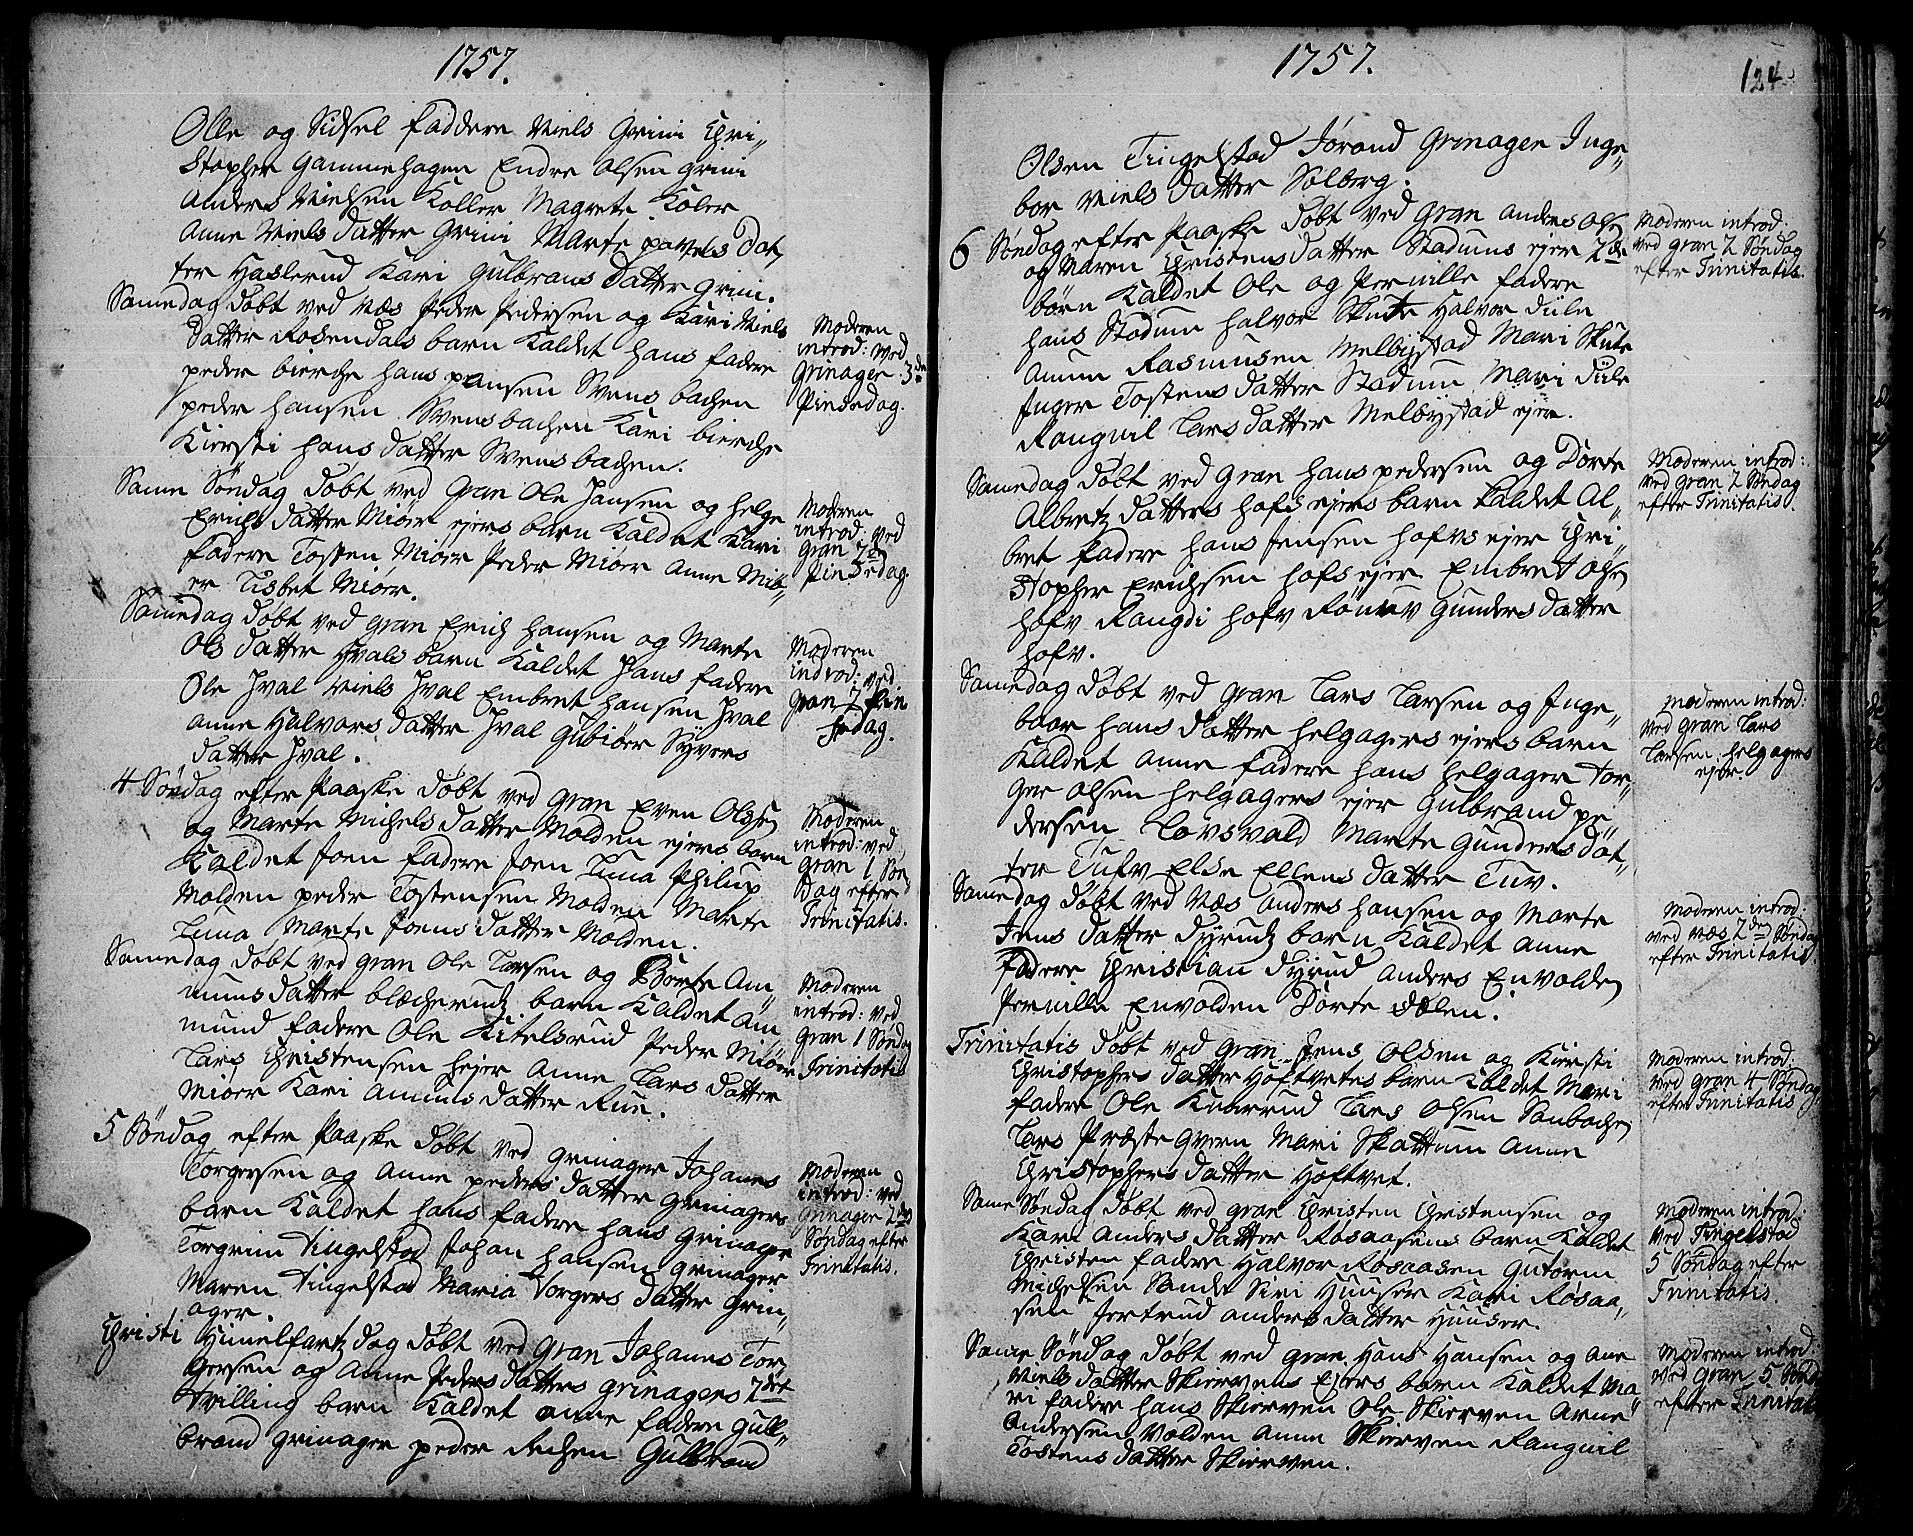 1757.
Olle og Sidsel faddere Niels Grini Chri„
stopher Gammehagen Endre Olsen Grini
Anders Nielsen Koller Magrete Koler
Anne Niels Datter Grini Marte povels Dat„
ter Haslerud Kari Gulbrans Datter Grini.
Samedag døbt ved Næs Peder Pedersen og Kari Niels
Datter Rosendals barn Kaldet Hans fadere
peder bierche hans hansen Svens bachen
peder Hansen Svensbachen Kari bierche
Kiersti hans Datter Svensbachen.
Moderen
introd: ved
Grinager 3de
Pindsedag.
Same Søndag døbt ved Gran Ole Jansen og helge
Erichs Datter Miøer ejers barn Kaldet Kari
fadere Tosten Miøer Peder Miøer Anne Miø„
er Lisbet Miøer.
Moderen
introd: ved
Gran 2den
Pinsedag.
Samedag døbt ved Gran Erich Hansen og Marte
Ols Datter Hvals barn Kaldet Hans fadere
Ole Hval Niels Hval Embret Hansen Hval
Anne Halvors Datter Hval Gubiøer Syvers
Datter Hval.
Moderen
indrod: ved
Gran 2 Pin
sedag.
4 Søndag efter Paaske døbt ved Gran Even Olsen
og Marte Michels Datter Molden ejers barn
Kaldet Joen fadere Joen Luna Philup
Molden peder Tostensen Molden Marte
Luna Marte Joens Datter Molden.
Moderen
introd: ved
Gran 1 Søn
dag efter
Trinitatis.
Samedag døbt ved Gran Ole Larsen og Dorte Am
muns Datter blæcherudz barn Kaldet Am
mund fadere Ole Kitelsrud Peder Miøer
Lars Christensen hejer Anne Lars Datter
Miøer Kari Amuns Datter Rue.
Moderen
introd: ved
Gran 1 Søndag
Trinitatis
5 Søndag efter Paaske døbt ved Grinager Johanes
Torgersen og Anne peders Datter Grinagers
barn Kaldet hans fadere hans Grinager
Torgrim Tingelstad Johan Hansen Grinager
Maren Tingelstad Maria Torgers Datter Grin„
ager.
Moderen
introd: ved
Grinager 2den
Søndag efter
Trinitatis.
Christi Himelfartz dag døbt ved Gran Johanes Tor
gersen og Anne Peders Datters Grinagers 2det
tvilling barn Kaldet Anne fadere Gull„
brand Grinager peder Gulbrand
1757.
124
Olsen Tingelstad Jørand Grinager Inge„
bor Niels Datter Solberg.
6 Søndag efter Paaske døbt ved Gran Anders Olsen
og Maren Christens Datter Stadums ejer 2de
børn Kaldet Ole og Pernille fadere
hans Stadum halvor Skute Halvor dule
Amun Rasmusen Melbystad Mari Skute
Inger Tostens Datter Stadum Mari Dule
Ranguil Lars Datter Melbystad ejer.
Moderen introd:
ved Gran 2 Søndag
efter Trinitatis.
Samedag døbt ved Gran hans pedersen og Dorte
Albretz Datters hofs ejers barn Kaldet Al„
bret fadere hans Jensen hofvs ejer Chri„
stopher Erichsen hofs ejer Embret Olsen
hofv Rangdi hofv Rønnv Gunders Datter
hofv.
Moderen introd:
ved Gran 2 Søndag
efter Trinitatis.
Samedag døbt ved Gran Lars Larsen og Inge„
baar hans Datter helgagers ejers barn
Kaldet Anne fadere hans helgager Tor„
ger Olsen helgagers ejer Gulbrand pe
dersen Løvsvald Marte Gunders Dat„
ter Tufv Else Ellens Datter Tuv.
Moderen introd:
ved Gran Lars
Larsen helgagers
ejer.
Samedag døbt ved Næs Anders Hansen og Marte
Jens Datter Dyrudz barn Kaldet Anne
fadere Christian Dyrud Anders Envolden
Pernille Envolden Dorte Dølen.
Moderen introd:
ved Næs 2den Søndag
efter Trinitatis
Trinitatis døbt ved Gran Jens Olsen og Kiersti
Christophers Datter Hoftvetes barn Kaldet Mari
fadere Ole Knarrud Lars Olsen Sanbachen
Lars Præste Gvern Mari Skattum Anne
Christophers Datter Hoftvet.
Moderen introd:
ved Gran 4 Søndag
efter Trinitatis
Same Søndag døbt ved Gran Christen Christensen og
Kari Anders Datter Røsaasens barn Kaldet
Christen fadere Halvor Røsaasen Gutorm
Michelsen Sande Siri Huuser Kari Røsaa„
sen Jertrud Anders Datter Huuser.
Moderen introd:
ved Tingelstad
5 Søndag efter
Trinitatis.
Same Søndag døbt ved Gran Hans Hansen og Ane
Niels Datter Skiervens Ejers barn Kaldet Ma
ri fadere hans Skierven Ole Skierven Arne
Andersen Volden Anne Skierven Ranguil
Tostens Datter Skierven.
Moderen introd:
ved Gran 5 Sønd
efter Trinitatis